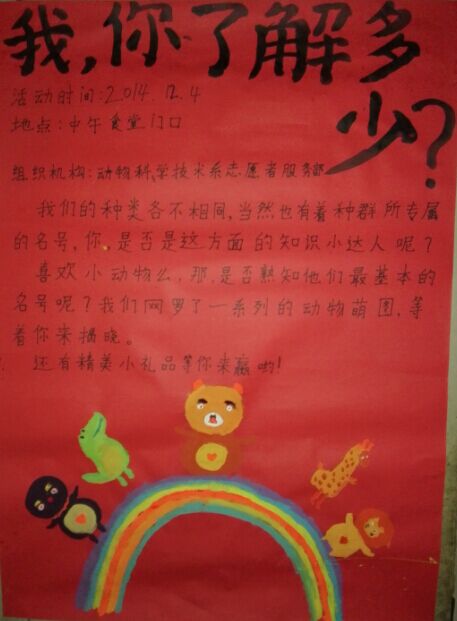 我,你了解多
少?
活动时间:2014.12.4
地点:中午食堂门口
组织机构:动物科学技术系志愿者服务部
我们的种类各不相同,当然也有着种群所专属
的名号,你,是否是这方面的知识小达人呢?
喜欢小动物么,那,是否熟知他们最基本的
名号呢?我们网罗了一系列的动物萌图,等
着你来揭晓。
还有精美小礼品等你来赢哟!